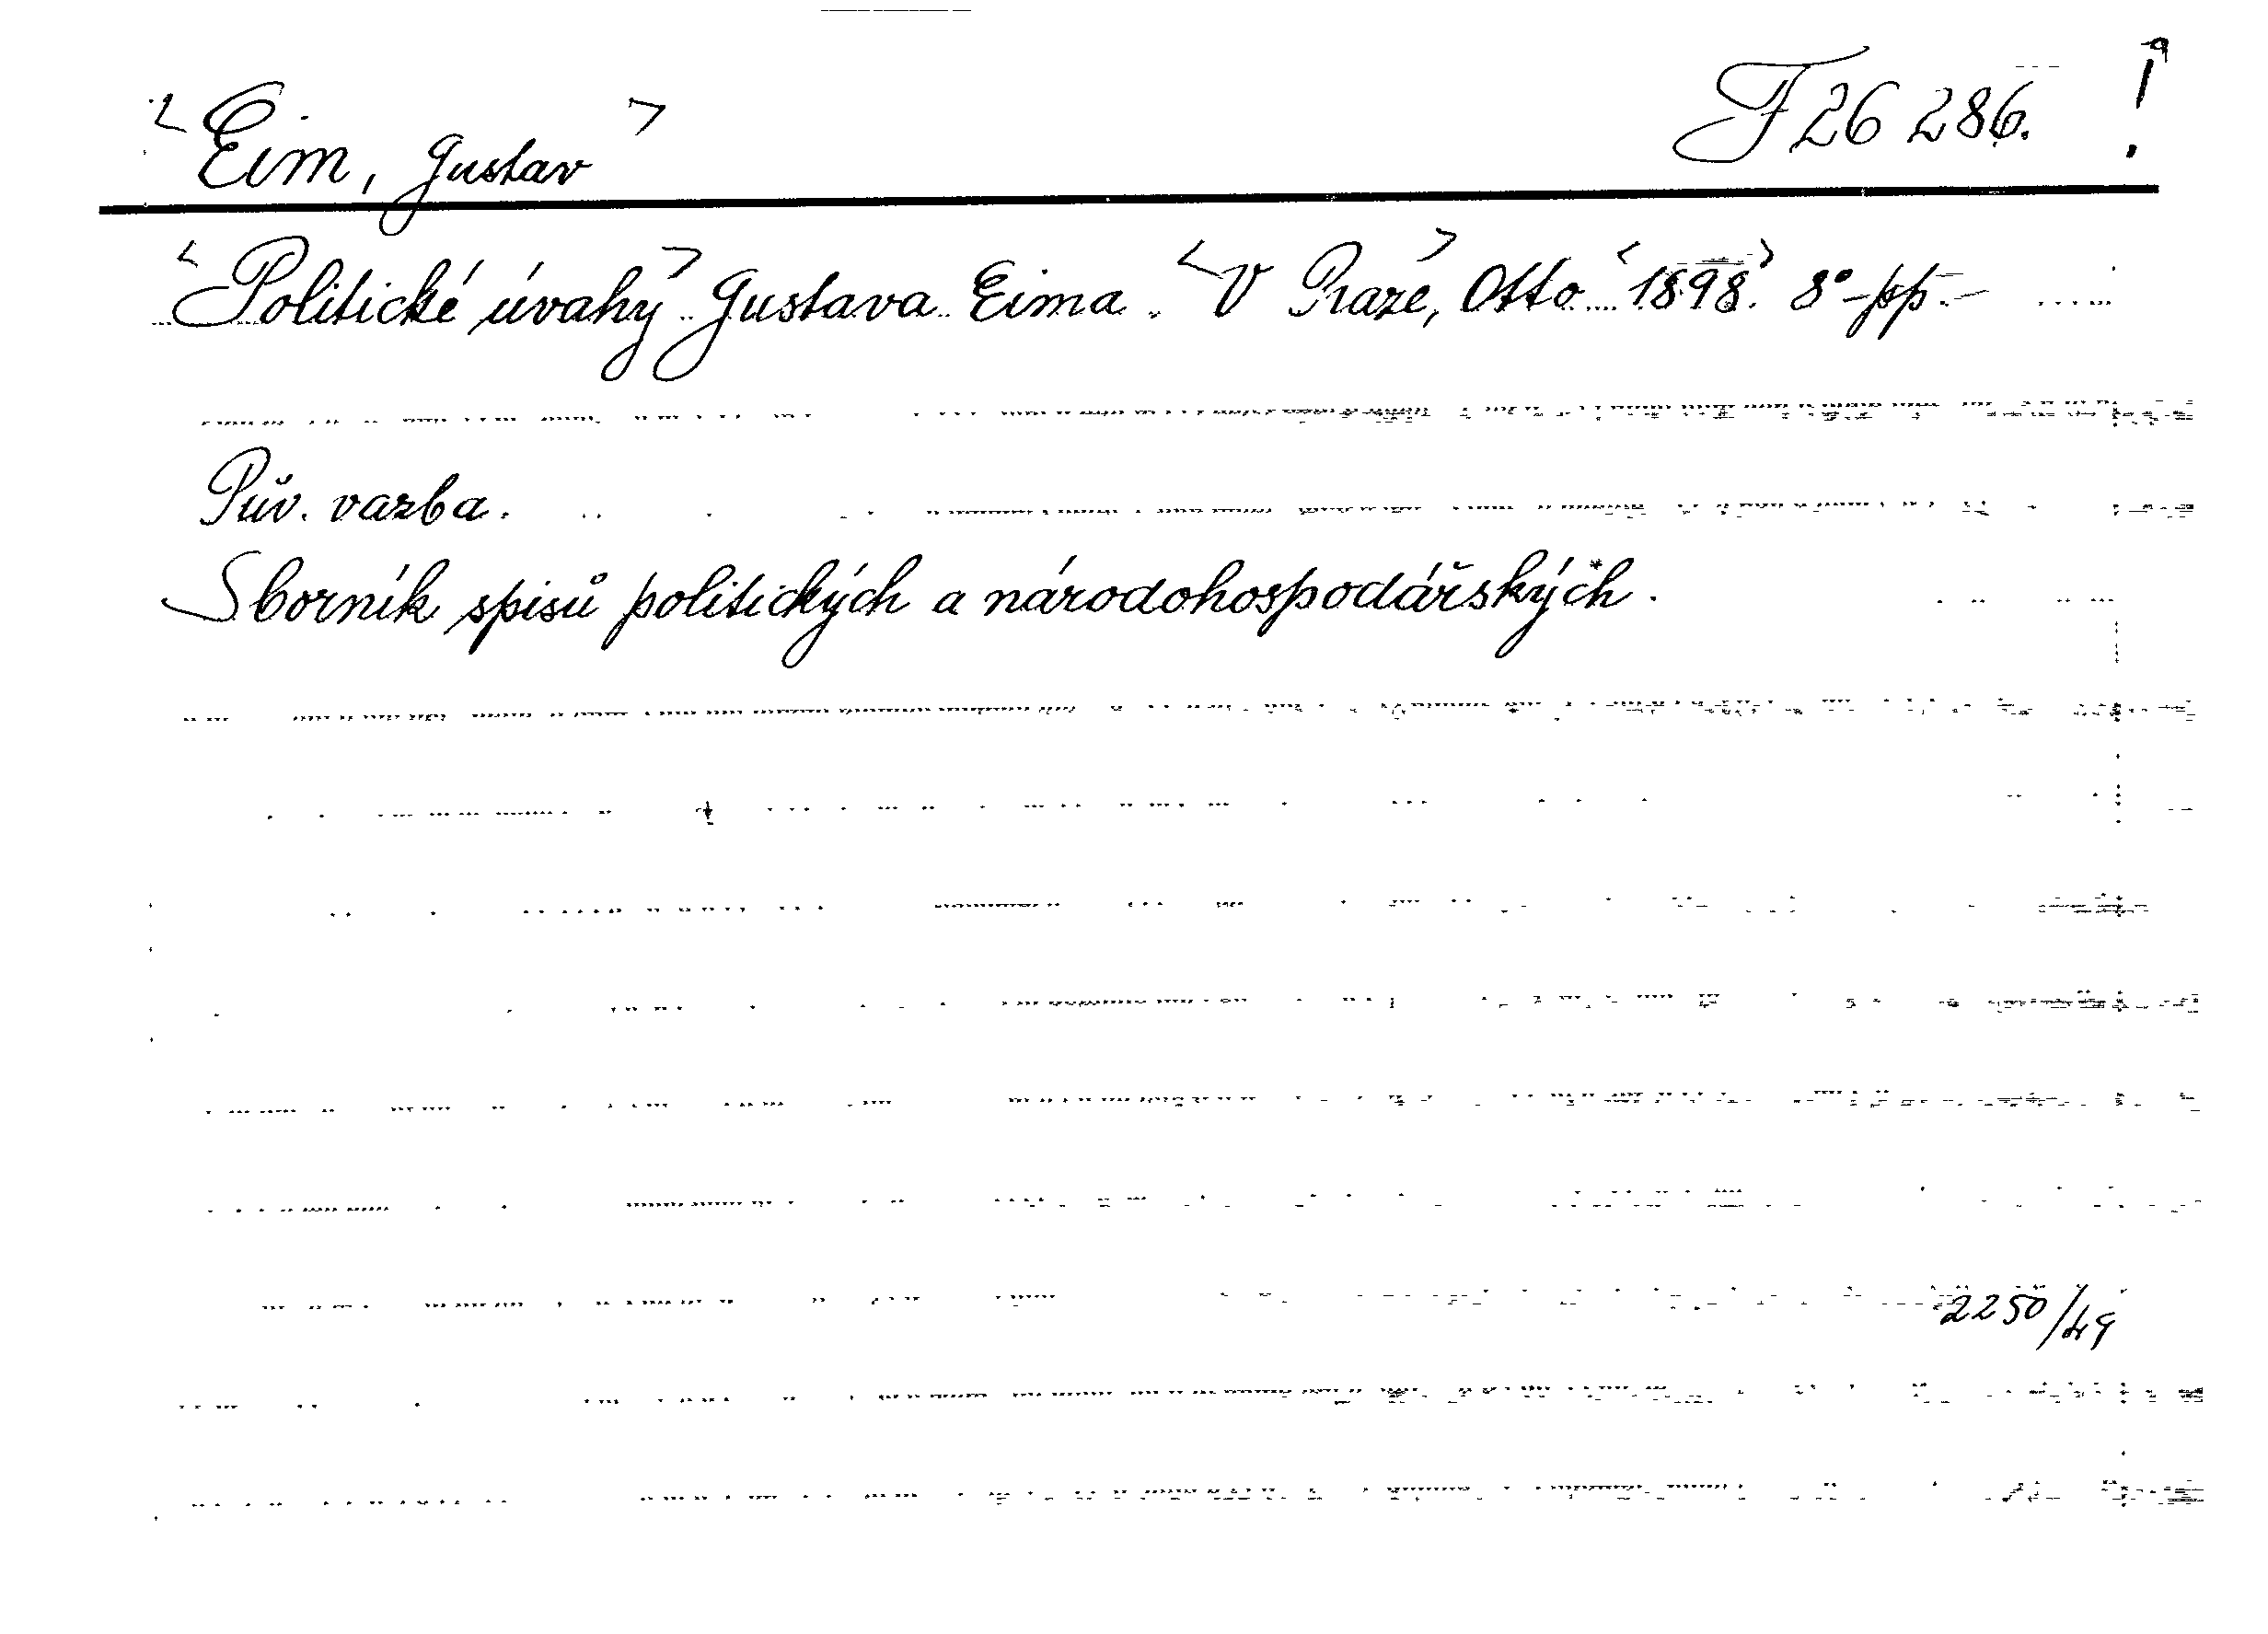 <Eim, Gustav> F 26 286. !
<Politické úvahy> Gustava Eima. <V Praze,> Otto <1898.> 8° -pp.-
Pův. vazba.
Sborník spisů politických a národohospodářských.
2250/49